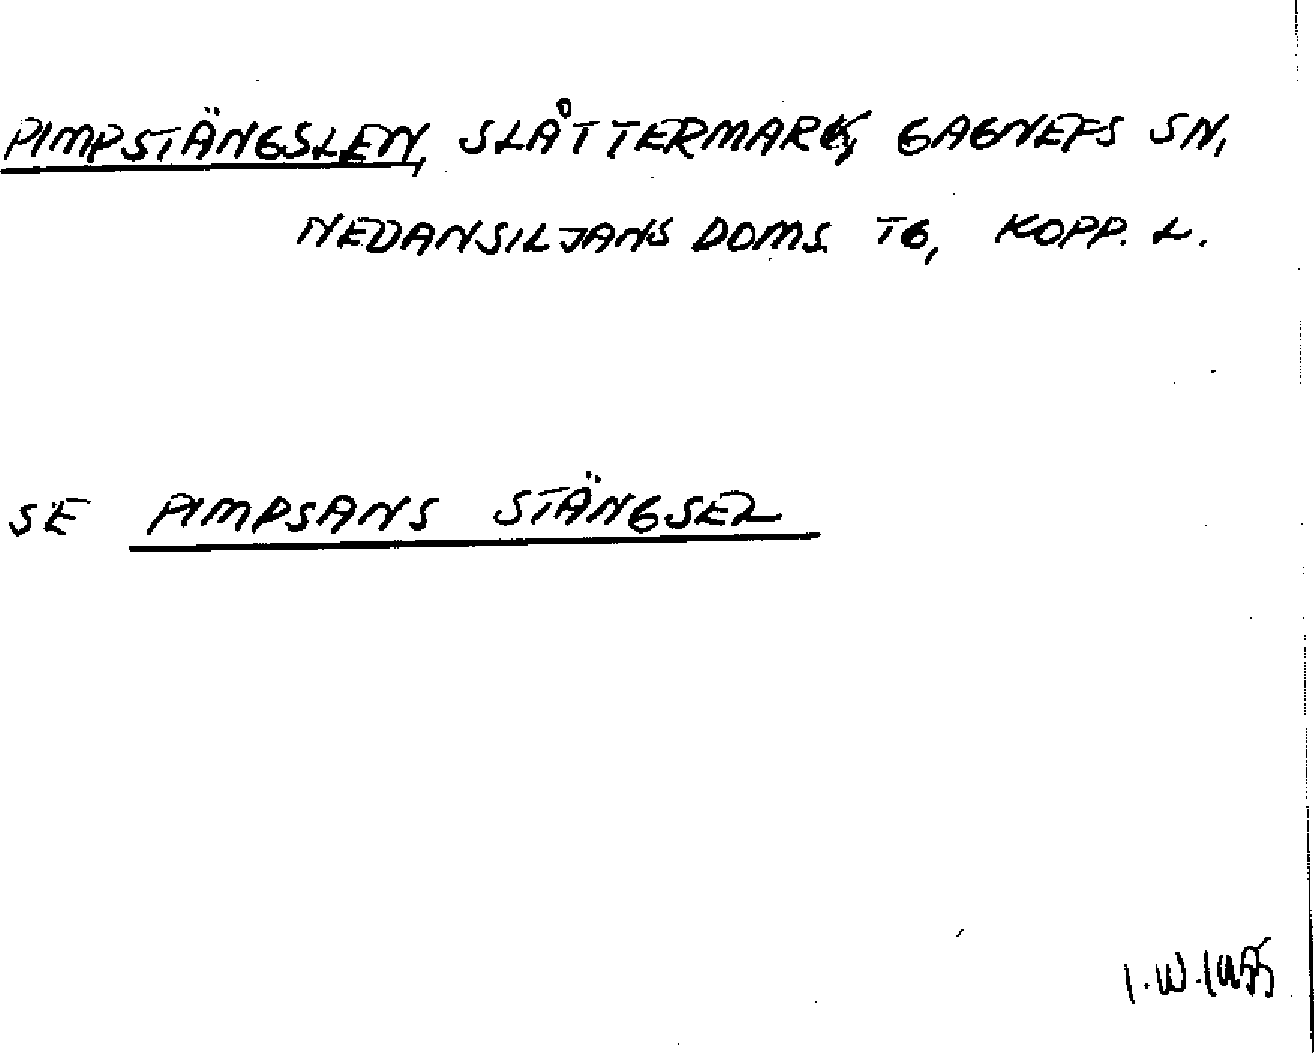 PIMPSTÄNGSLEN, SLÅTTERMARK, GAGNEFS SN,
NEDANSILJANS DOMS. TG, KOPP. L.
SE PIMPSANS STÄNGSEL
I.W.